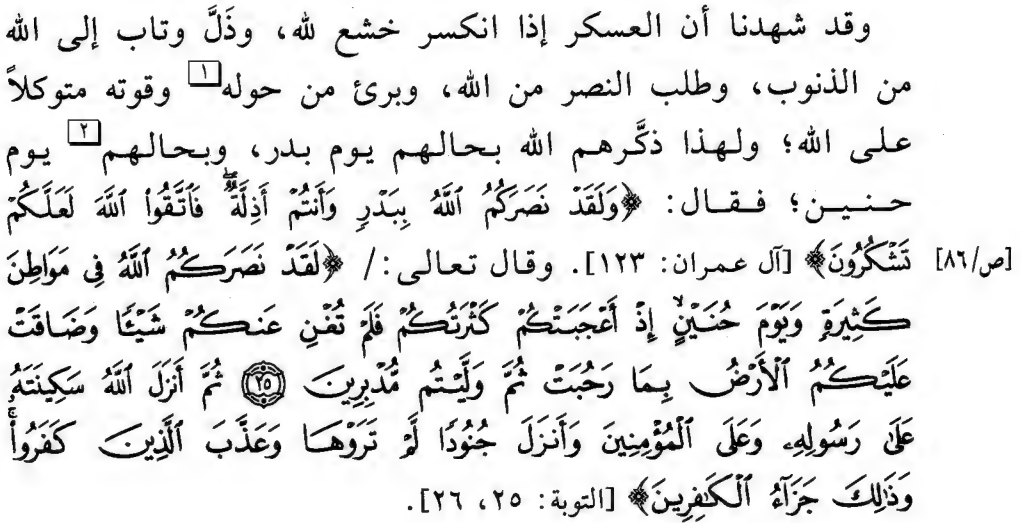 وقد شهدنا أن العسكر إذا انكسر خشع لله، وذَلَّ وتاب إلى الله
من الذنوب، وطلب النصر من الله، وبرئ من حوله[١] وقوته متوكلاً
على الله؛ ولهذا ذكَّرهم الله بحالهم يوم بدر، وبحالهم[٢] يوم
حنين؛ فقال: ﴿وَلَقَدْ نَصَرَكُمُ ٱللَّهُ بِبَدْرٍ وَأَنتُمْ أَذِلَّةٌ ۖ فَٱتَّقُوا۟ ٱللَّهَ لَعَلَّكُمْ
تَشْكُرُونَ﴾ [آل عمران: ١٢٣]. وقال تعالى:/ ﴿لَقَدْ نَصَرَكُمُ ٱللَّهُ فِى مَوَاطِنَ [ص/٨٦]
كَثِيرَةٍ وَيَوْمَ حُنَيْنٍ ۙ إِذْ أَعْجَبَتْكُمْ كَثْرَتُكُمْ فَلَمْ تُغْنِ عَنكُمْ شَيْـًٔا وَضَاقَتْ
عَلَيْكُمُ ٱلْأَرْضُ بِمَا رَحُبَتْ ثُمَّ وَلَّيْتُم مُّدْبِرِينَ ٢٥ ثُمَّ أَنزَلَ ٱللَّهُ سَكِينَتَهُۥ
عَلَىٰ رَسُولِهِۦ وَعَلَى ٱلْمُؤْمِنِينَ وَأَنزَلَ جُنُودًا لَّمْ تَرَوْهَا وَعَذَّبَ ٱلَّذِينَ كَفَرُوا۟ ۚ
وَذَٰلِكَ جَزَآءُ ٱلْكَـٰفِرِينَ﴾ [التوبة: ٢٥، ٢٦].